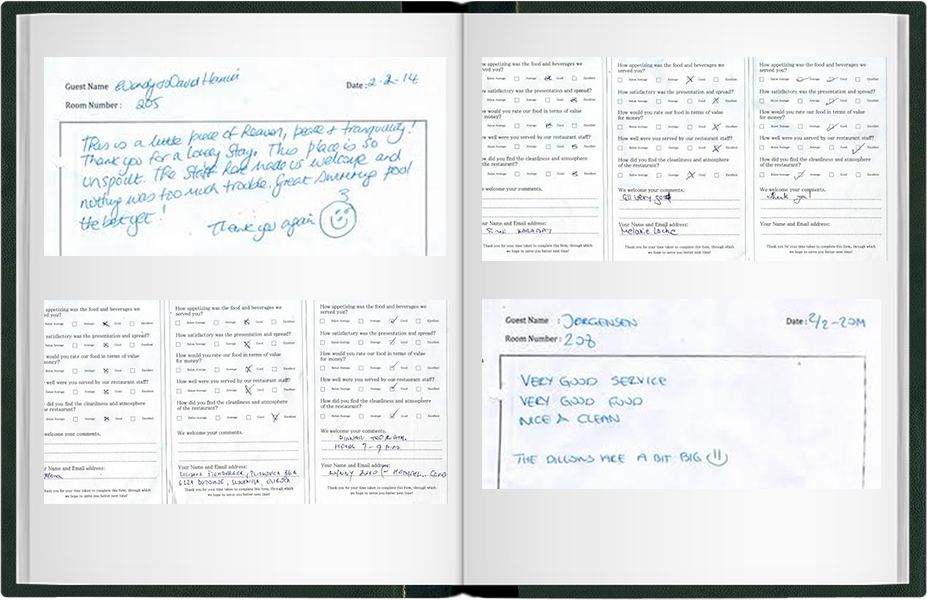 Guest Name Wendy & David Date: 2-2-14
Room Number: 205
This is a little piece of Heaven, peace & tranquility!
Thank you for a lovely stay. This place is so
unspoilt. The staff have made us welcome and
nothing was too much trouble. Great swimming pool
the best yet!
Thank you again
How appetizing was the food and beverages we
served you?
Below Average Average Good Excellent
How satisfactory was the presentation and spread?
Below Average Average Good Excellent
would you rate our food in terms of value
money?
Below Average Average Good Excellent
well were you served by our restaurant staff?
Below Average Average Good Excellent
did you find the cleanliness and atmosphere
the restaurant?
Below Average Average Good Excellent
welcome your comments.
Your Name and Email address:
Thank you for your time taken to complete this form, through which
we hope to serve you better next time!
How appetizing was the food and beverages we
served you?
Below Average Average Good Excellent
How satisfactory was the presentation and spread?
Below Average Average Good Excellent
How would you rate our food in terms of value
for money?
Below Average Average Good Excellent
How well were you served by our restaurant staff?
Below Average Average Good Excellent
How did you find the cleanliness and atmosphere
of the restaurant?
Below Average Average Good Excellent
We welcome your comments.
All very good
Your Name and Email address:
Melanie
Thank you for your time taken to complete this form, through which
we hope to serve you better next time!
How appetizing was the food and beverages we
served you?
Below Average Average Good Excellent
How satisfactory was the presentation and spread?
Below Average Average Good Excellent
How would you rate our food in terms of value
for money?
Below Average Average Good Excellent
How well were you served by our restaurant staff?
Below Average Average Good Excellent
How did you find the cleanliness and atmosphere
of the restaurant?
Below Average Average Good Excellent
We welcome your comments.
thank you!
Your Name and Email address:
Thank you for your time taken to complete this form, through which
we hope to serve you better next time!
How appetizing was the food and beverages we
served you?
Below Average Average Good Excellent
How satisfactory was the presentation and spread?
Below Average Average Good Excellent
would you rate our food in terms of value
money?
Below Average Average Good Excellent
well were you served by our restaurant staff?
Below Average Average Good Excellent
did you find the cleanliness and atmosphere
the restaurant?
Below Average Average Good Excellent
welcome your comments.
Name and Email address:
Thank you for your time taken to complete this form, through which
we hope to serve you better next time!
How appetizing was the food and beverages we
served you?
Below Average Average Good Excellent
How satisfactory was the presentation and spread?
Below Average Average Good Excellent
How would you rate our food in terms of value
for money?
Below Average Average Good Excellent
How well were you served by our restaurant staff?
Below Average Average Good Excellent
How did you find the cleanliness and atmosphere
of the restaurant?
Below Average Average Good Excellent
We welcome your comments.
Your Name and Email address:
SLOVENIJA, EUROPA
Thank you for your time taken to complete this form, through which
we hope to serve you better next time!
How appetizing was the food and beverages we
served you?
Below Average Average Good Excellent
How satisfactory was the presentation and spread?
Below Average Average Good Excellent
How would you rate our food in terms of value
for money?
Below Average Average Good Excellent
How well were you served by our restaurant staff?
Below Average Average Good Excellent
How did you find the cleanliness and atmosphere
of the restaurant?
Below Average Average Good Excellent
We welcome your comments.
DINNER
7-9
Your Name and Email address:
Thank you for your time taken to complete this form, through which
we hope to serve you better next time!
Guest Name : JORGENSEN Date: 2/2-2014
Room Number: 208
VERY GOOD SERVICE
VERY GOOD FOOD
NICE & CLEAN
THE PILLOWS ARE A BIT BIG